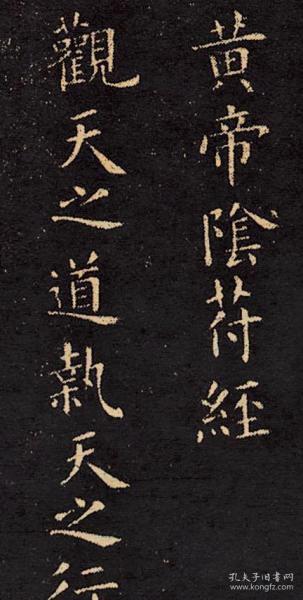 黄帝陰符經
觀天之道執天之行
孔夫子旧书网
www.kongfz.com